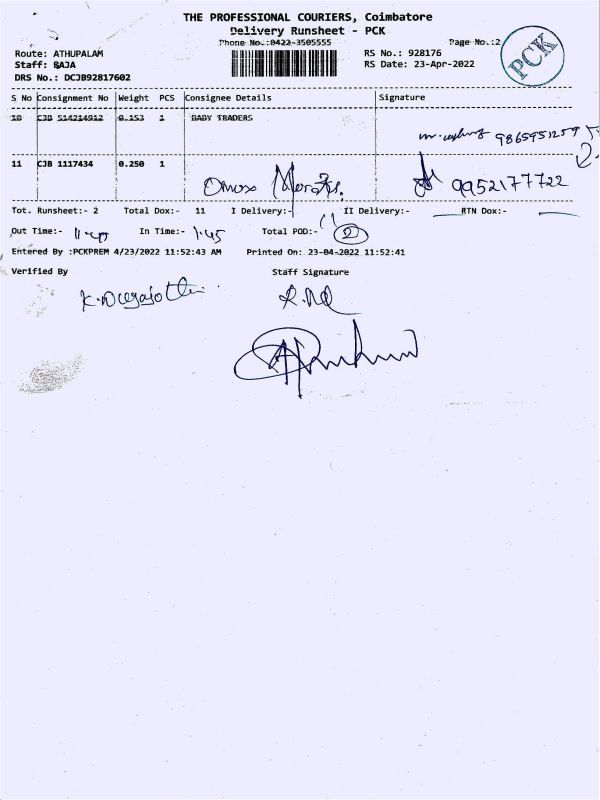 THE PROFESSIONAL COURIERS, Coimbatore
Delivery Runsheet - PCK
Phone No.:0422-3505555 Page No.:2
PCK
Route: ATHUPALAM RS No.: 928176
Staff: RAJA RS Date: 23-Apr-2022
DRS No.: DCJB92817602
S No Consignment No Weight PCS Consignee Details Signature
10 CJB 514214912 0.153 1 BABY TRADERS
9865951259
11 CJB 1117434 0.250 1
9952177722
Tot. Runsheet:- 2 Total Dox:- 11 I Delivery:- 11 II Delivery:- RTN Dox:-
Out Time:- In Time:- 1.45 Total POD:- 2
Entered By :PCKPREM 4/23/2022 11:52:43 AM Printed On: 23-04-2022 11:52:41
Verified By Staff Signature